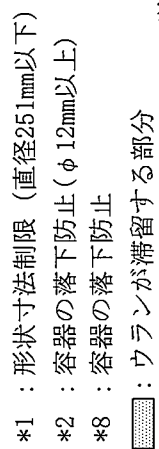 *1 ：形状寸法制限（直径251mm以下）
*2 ：容器の落下防止（φ12mm以上）
*8 ：容器の落下防止
：ウランが滞留する部分